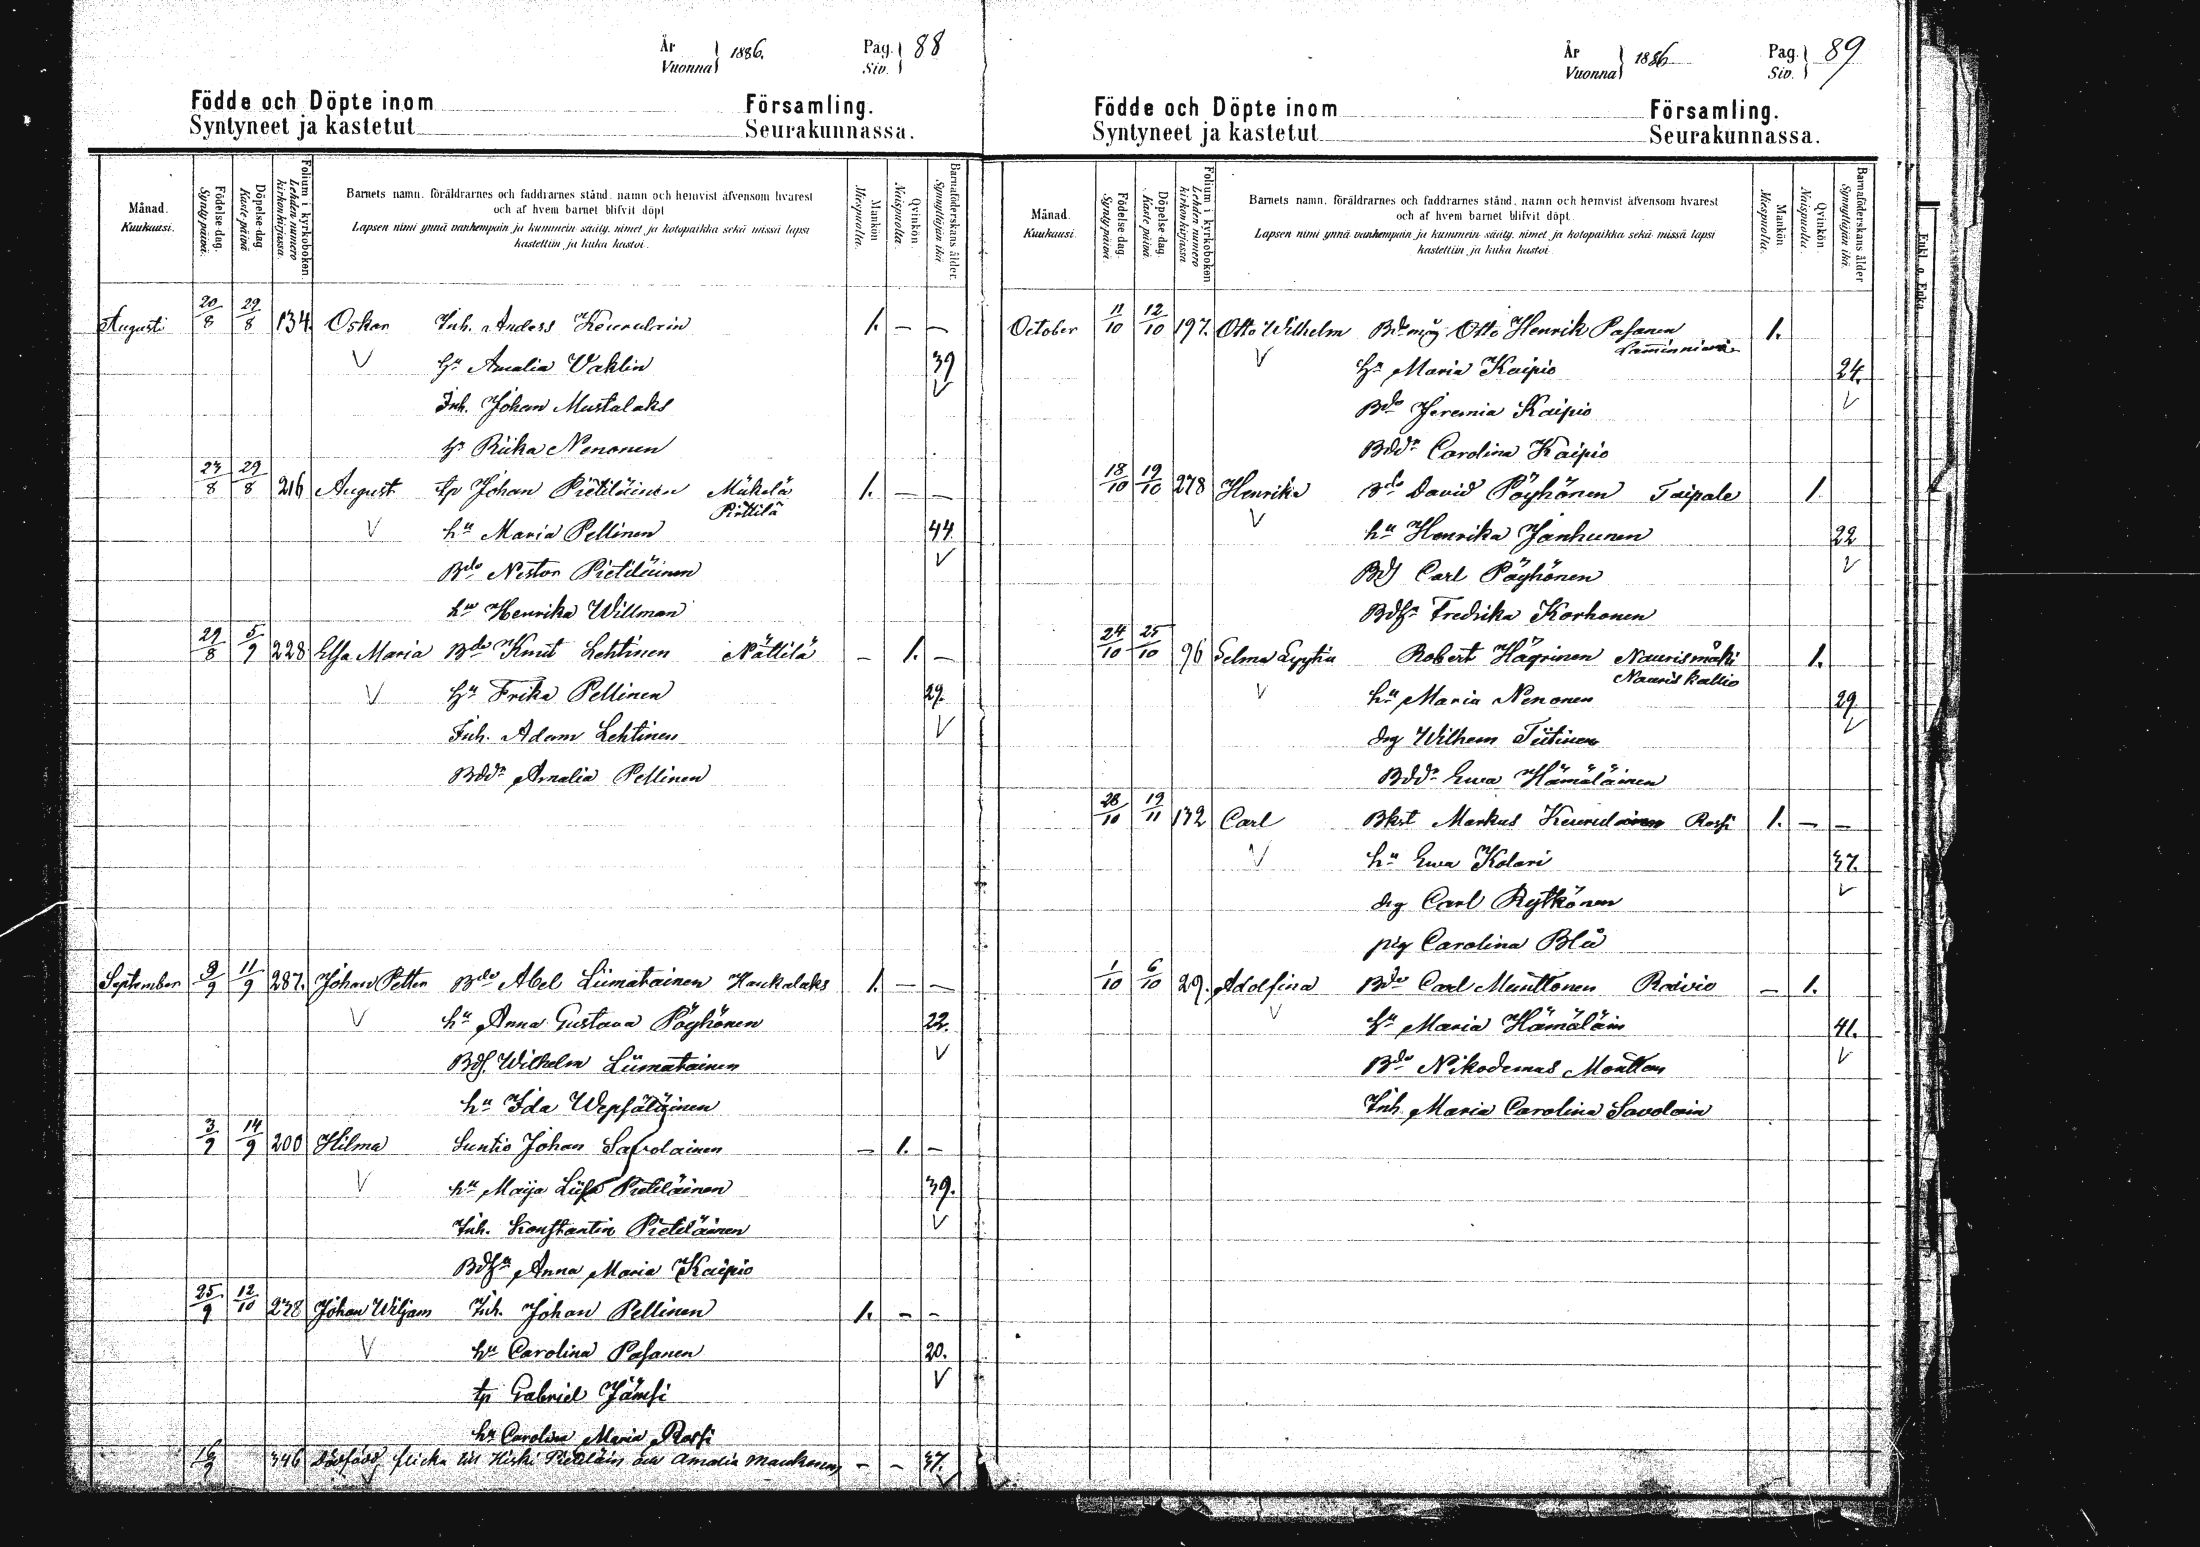 År
Vuonna } 1886.
Pag.
Siv. } 88
Födde och Döpte inom Församling.
Syntyneet ja kastetut Seurakunnassa.
Månad.
Kuukausi.
Födelse-dag.
Syntypäivä.
Döpelse-dag
Kastepäivä
Folium i kyrkoboken.
Lehden numero kirkonkirjassa.
Barnets namn, föräldrarnes och faddrarnes stånd, namn och hemvist äfvensom hvarest
och af hvem barnet blifvit döpt
Lapsen nimi ynnä vanhempain ja kummein sääty, nimet ja kotopaikka sekä missä lapsi
kastettiin ja kuka kastoi.
Mankön
Miespuolia.
Qvinkön.
Naispuolia.
Barnaföderskans ålder.
Synnyttäjän ikä.
Augusti 20/8 29/8 134. Oskar Inh. Anders Keurulain 1. — —
V hu Amalia Vaklin 39
Inh. Johan Mustalaks V
hu Riika Nenonen
23/8 29/8 216 August tp Johan Pietiläinen Mäkelä 1. — —
Pirttilä
V hu Maria Pellinen 44.
Bdo Nestor Pietiläinen V
hu Henrika Willman
29/8 5/9 228 Elsa Maria Bdo Knut Lehtinen Nättilä — 1. —
V hu Frika Pellinen 29.
Inh. Adam Lehtinen V
Bddr Amalia Pellinen
September 9/9 11/9 287. Johan Petter Bdo Abel Liimatainen Haukalaks 1. — —
V hu Anna Gustava Pöyhönen 22.
Bds. Wilhelm Liimatainen V
hu Ida Wepsäläinen
3/9 14/9 200 Hilma Suntio Johan Savolainen — 1. —
V hu Maija Liisa Pietiläinen 39.
Inh. Konstantin Pietiläinen V
Bdhu Anna Maria Kaipio
25/9 12/10 238 Johan Wiljam Inh. Johan Pellinen 1. — —
V hu Carolina Pasanen 20.
tp Gabriel Jämsi V
hu Carolina Maria Rossi
16/9 346 Dödfödd flicka till Hiski Pietiläin Amalia Maukonen — — 37.
V V
År
Vuonna } 1886
Pag.
Siv. } 89
Födde och Döpte inom Församling.
Syntyneet ja kastetut Seurakunnassa.
Månad.
Kuukausi.
Födelse-dag.
Syntypäivä.
Döpelse-dag.
Kastepäivä.
Folium i kyrkoboken
Lehden numero kirkonkirjassa
Barnets namn, föräldrarnes och faddrarnes stånd, namn och hemvist äfvensom hvarest
och af hvem barnet blifvit döpt.
Lapsen nimi ynnä vanhempain ja kummein sääty, nimet ja kotopaikka sekä missä lapsi
kastettiin ja kuka kastoi.
Mankön.
Miespuolia.
Qvinkön.
Naispuolia.
Barnaföderskans ålder
Synnyttäjän ikä.
October 11/10 12/10 197. Otto Wilhelm Bdemåg Otto Henrik Pasanen 1.
Lamminniemi
V hu Maria Kaipio 24.
Bdo Jeremia Kaipio V
Bddr Carolina Kaipio
18/10 19/10 278 Henrika Bdo David Pöyhönen Taipale 1
V hu Henrika Janhunen 22
Bds Carl Pöyhönen V
Bdhu Fredrika Korhonen
24/10 25/10 96 Selma Lyytia Robert Hägrinen Naurismäki 1.
Nauriskallio
V hu Maria Nenonen 29
drg Wilhem Tiitinen V
Bddr Ewa Hämäläinen
28/10 19/11 132 Carl Bkst Markus Keurulainen Rossi 1. — —
V hu Ewa Kolari 37.
drg Carl Rytkönen V
pig Carolina Blå
1/10 6/10 29. Adolfina Bdo Carl Munttonen Raivio — 1.
V hu Maria Hämäläin 41.
Bdo Nikodemus Montton V
Inh. Maria Carolina Savolain
Enkl. o. Enka